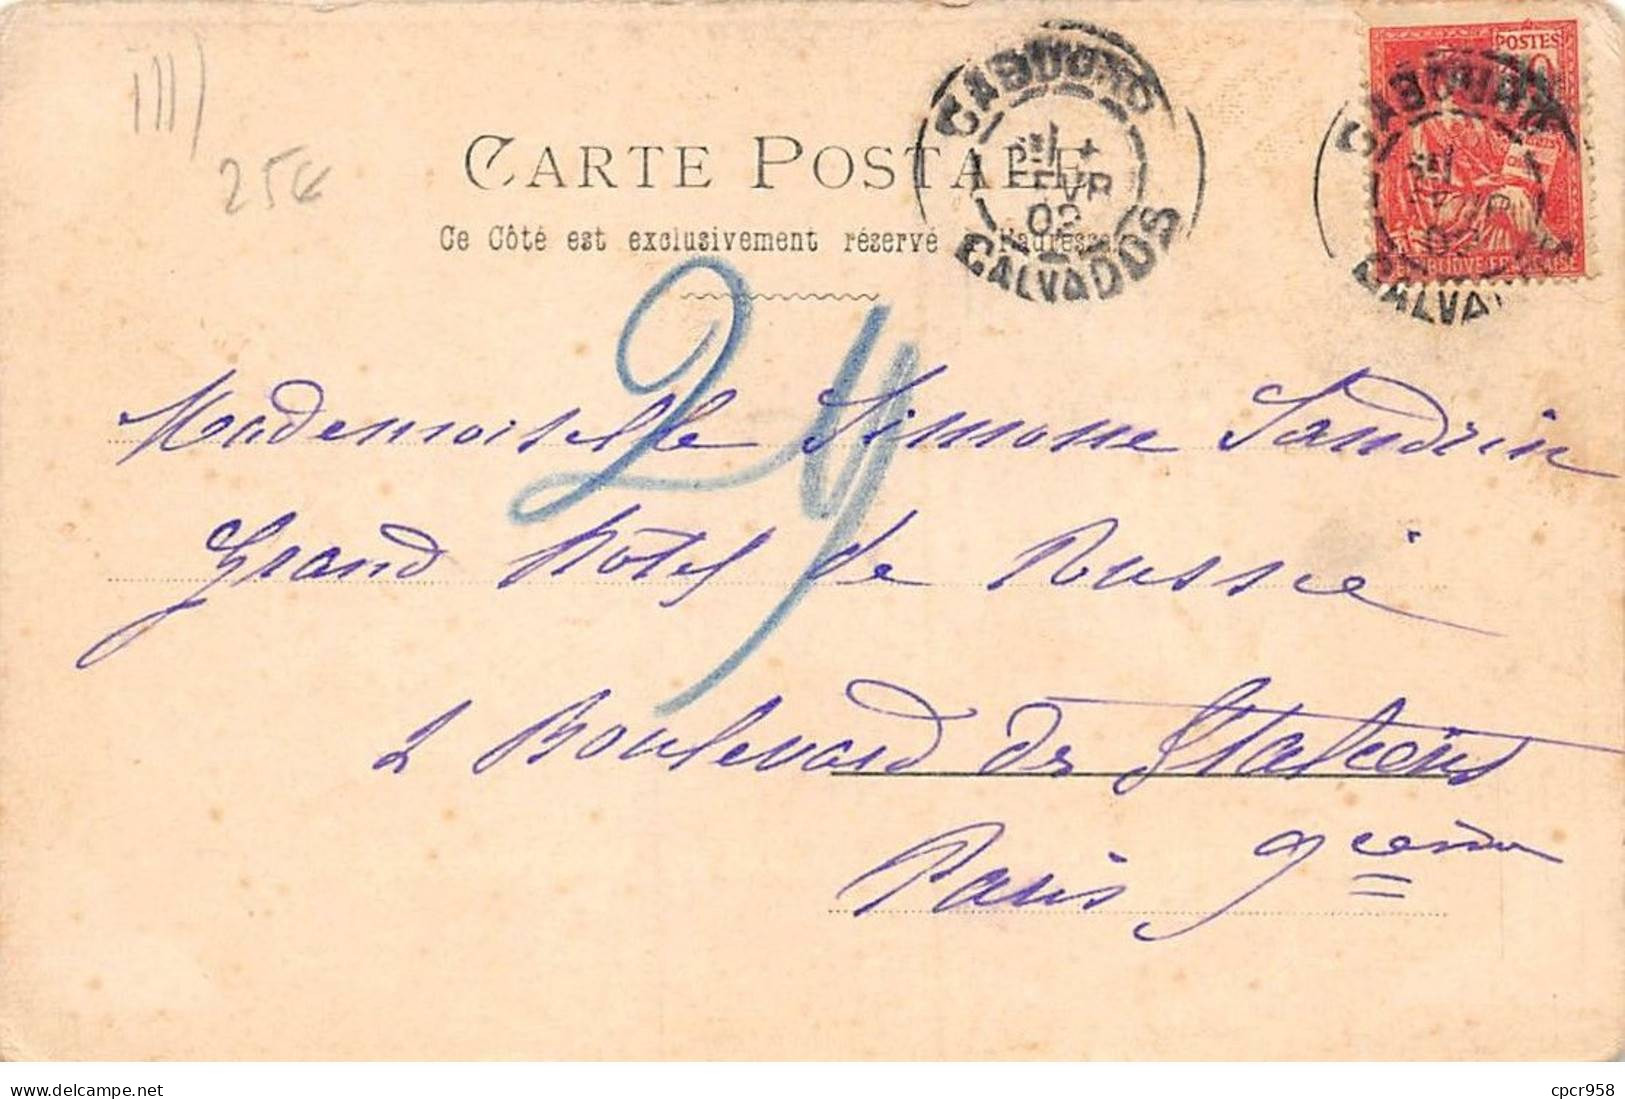 25€
CARTE POSTALE
Ce Côté est exclusivement réservé à l'adresse
CABOURG
FEVR
02
CALVADOS
POSTES
10
CABOURG
02
CALVA
RÉPUBLIQUE FRANÇAISE
24
Mademoiselle Simone Sandrin
Grand hôtel de Russie
2 Boulevard des Italiens
Paris 9ème
www.delcampe.net
cpcr958